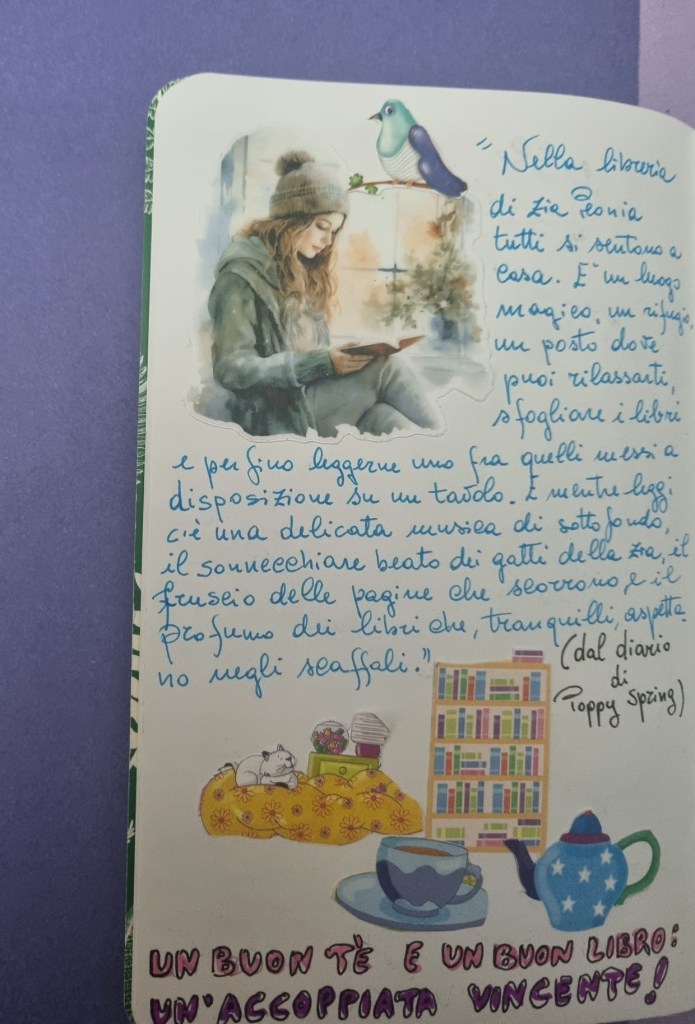 "Nella libreria
di zia Peonia
tutti si sentono a
casa. E' un luogo
magico, un rifugio,
un posto dove
puoi rilassarti,
sfogliare i libri
e perfino leggerne uno fra quelli messi a
disposizione su un tavolo. E mentre leggi
c'è una delicata musica di sottofondo,
il sonnecchiare beato dei gatti della zia, il
fruscio delle pagine che scorrono, e il
profumo dei libri che, tranquilli, aspetta-
no negli scaffali."
(dal diario
di
Poppy Spring)
UN BUON TÈ E UN BUON LIBRO:
UN'ACCOPPIATA VINCENTE!